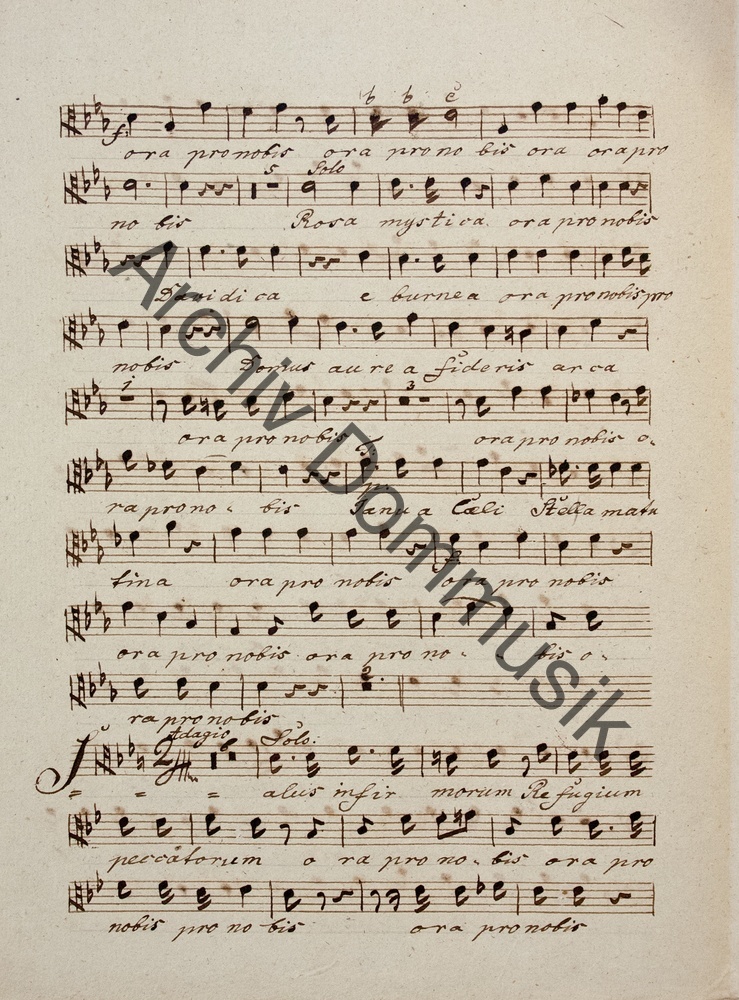 b b c
f
ora pro nobis ora pro no bis ora ora pro
5 Solo
no bis Rosa mystica ora pro nobis
Davidica e burnea ora pro nobis pro
nobis Domus aurea fideris arca
1 3
ora pro nobis ora pro nobis o-
ra pro no- bis Janua Cœli Stella matu
tina ora pro nobis ora pro nobis
ora pro nobis ora pro no- bis o-
ra pro nobis
Adagio 6 Solo:
S = = = alus infir morum Refugium
peccatorum o ra pro no- bis ora pro
nobis pro no bis ora pro nobis
Archiv Dommusik